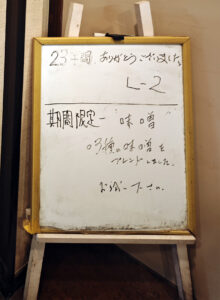 23年間 ありがとうございました。
L-2
期間限定-"味噌"
の3種の味噌を
ブレンドしました。
お召し下さい。